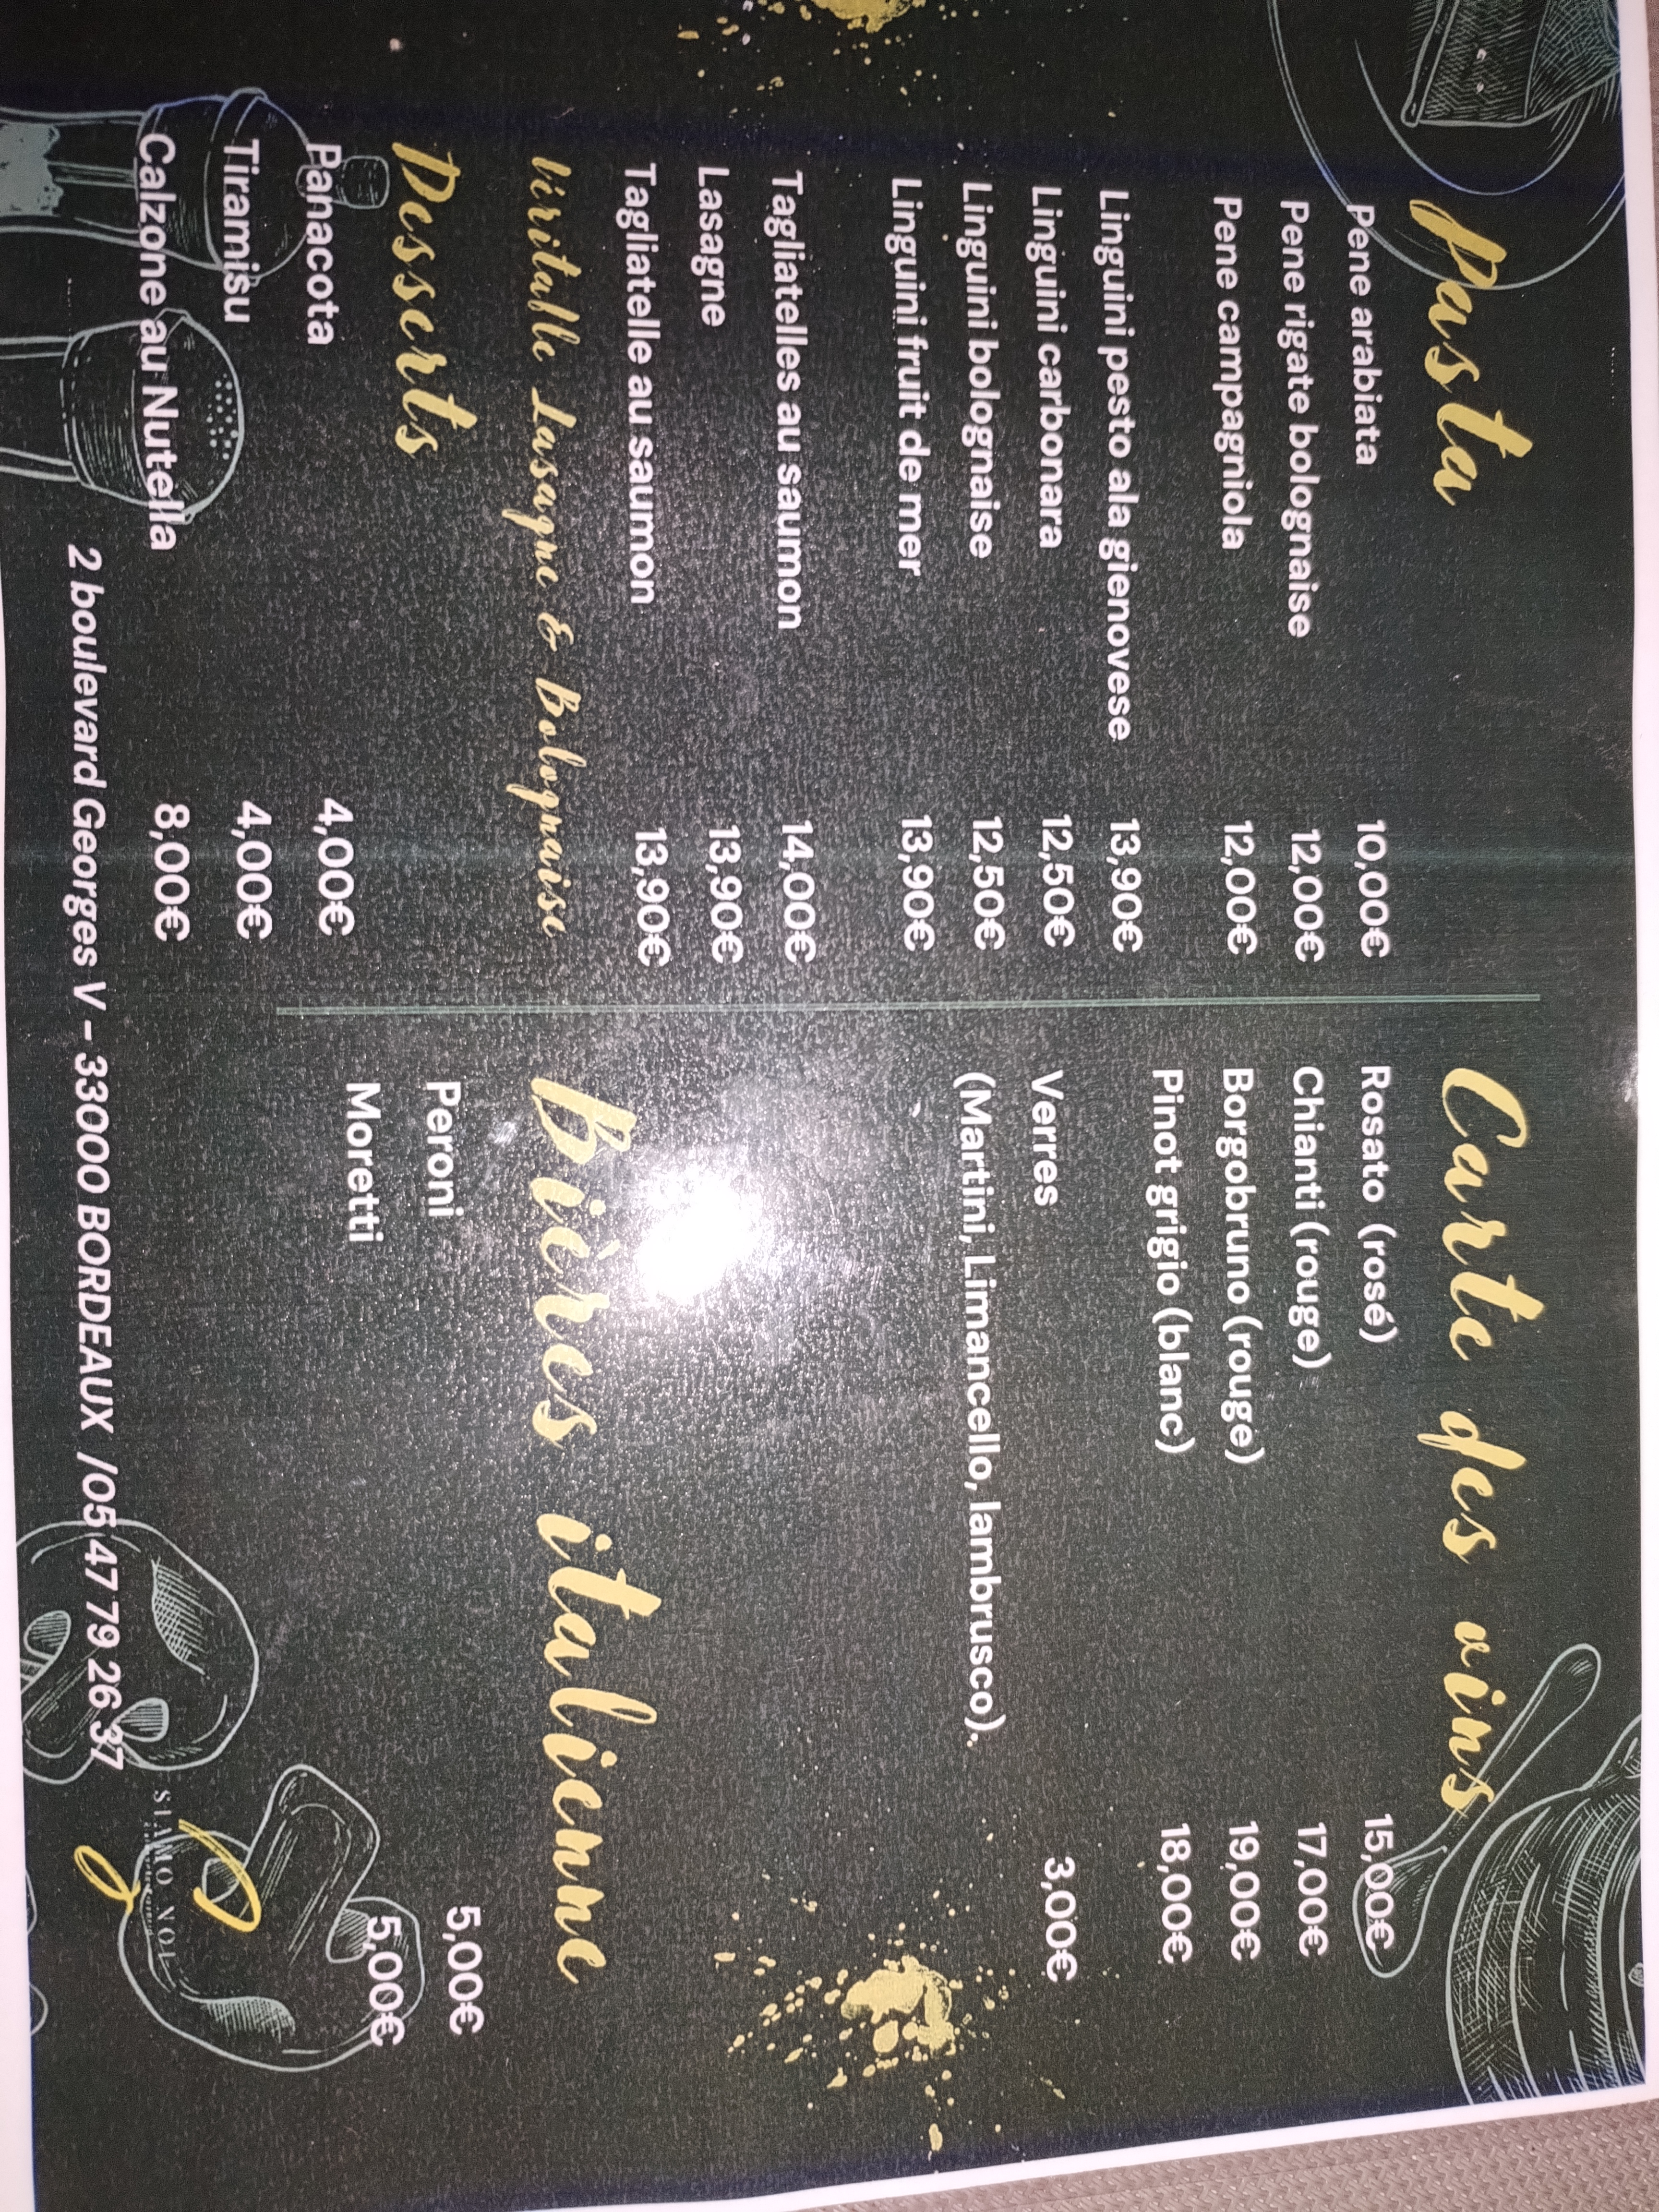 Pasta
Pene arabiata 10,00€
Pene rigate bolognaise 12,00€
Pene campagniola 12,00€
Linguini pesto ala gienovese 13,90€
Linguini carbonara 12,50€
Linguini bolognaise 12,50€
Linguini fruit de mer 13,90€
Tagliatelles au saumon 14,00€
Lasagne 13,90€
Tagliatelle au saumon 13,90€
Véritable Lasagne & Bolognaise
Desserts
Panacota 4,00€
Tiramisu 4,00€
Calzone au Nutella 8,00€
Carte des vins
Rosato (rosé) 15,00€
Chianti (rouge) 17,00€
Borgobruno (rouge) 19,00€
Pinot grigio (blanc) 18,00€
Verres 3,00€
(Martini, Limancello, lambrusco).
Bières italienne
Peroni 5,00€
Moretti 5,00€
2 boulevard Georges V – 33000 BORDEAUX /05 47 79 26 37
SIAMO NOI